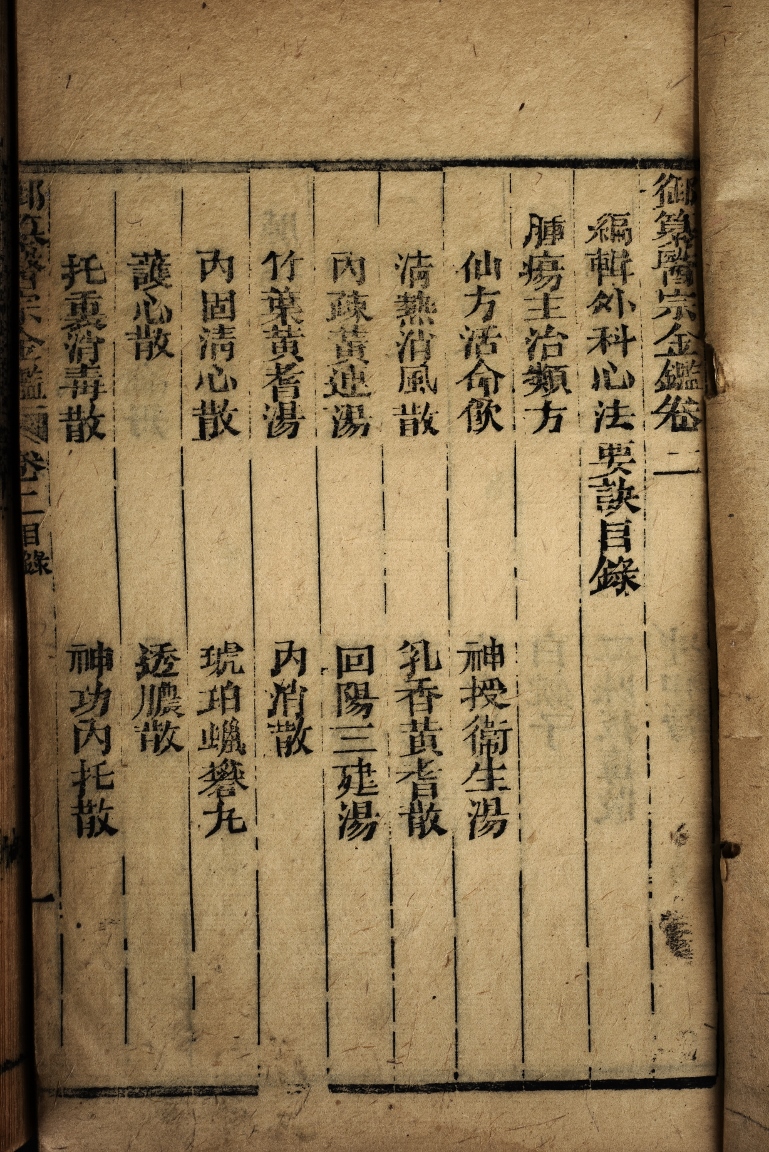 御纂醫宗金鑑卷二
編輯外科心法要訣目錄
腫瘍主治類方
仙方活命飲
神授衛生湯
清熱消風散
乳香黃耆散
內疎黃連湯
回陽三建湯
竹葉黃耆湯
內消散
內固清心散
琥珀蠟礬丸
護心散
透膿散
托裏消毒散
神功內托散
御纂醫宗金鑑
卷二目錄
一